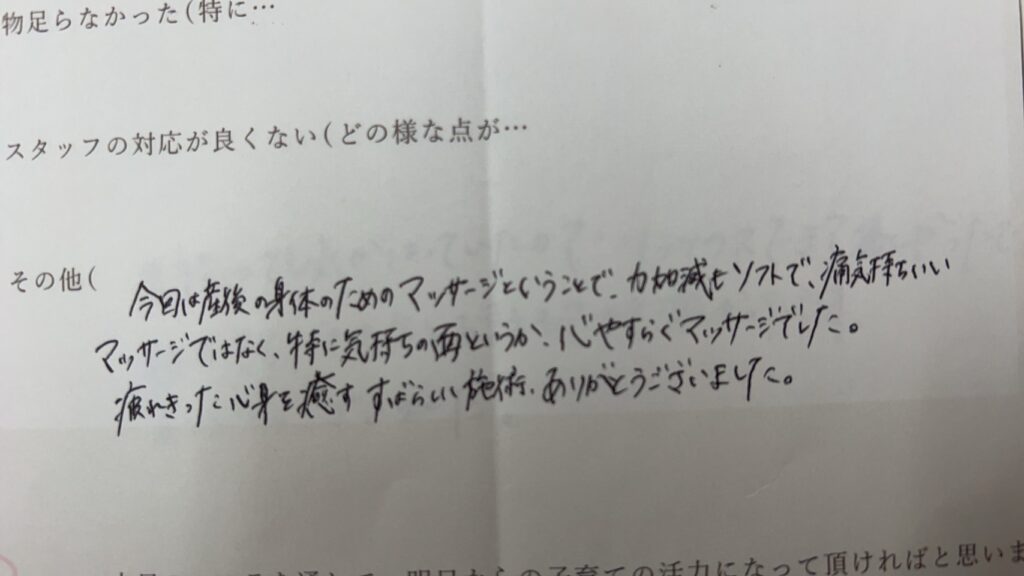 物足らなかった(特に…
スタッフの対応が良くない(どの様な点が…
その他(
今回は産後の身体のためのマッサージということで、力加減もソフトで、痛気持ちいい
マッサージではなく、特に気持ちの面というか、心やすらぐマッサージでした。
疲れきった心身を癒すすばらしい施術、ありがとうございました。
明日からの子育ての活力になって頂ければと思いま